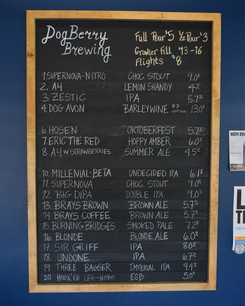 DogBerry
Brewing
Full Pour $5 ½ Pour $3
Growler Fill $13-16
Flights $8
1. SUPERNOVA-NITRO CHOC STOUT 9.0%
2. A4 LEMON SHANDY 4%
3. ZESTIC IPA 5.7%
4. DOG AVON BARLEYWINE 13.0%
6. HOSEN OKTOBERFEST 5.7%
7. ERIC THE RED HOPPY AMBER 6.0%
8. A4 W/STRAWBERRIES SUMMER ALE 4.5%
10. MILLENIAL-BETA UNDECIDED IPA 6.1%
11. SUPERNOVA CHOC STOUT 9.0%
12. BIG DIPA DOUBLE IPA 9.0%
13. BRAYS BROWN BROWN ALE 5.7%
14. BRAYS COFFEE BROWN ALE 5.7%
15. BURNING BRIDGES SMOKED PALE 7.2%
16. BLONDE BLONDE ALE 6.0%
17. SIR GRIFF IPA 8.0%
18. UNDONE IPA 6.7%
19. THREE BAGGER IMPERIAL IPA 9.4%
20. ESB 5.0%